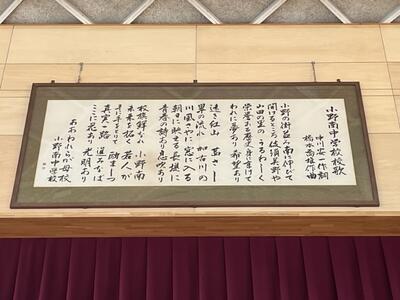 小野南中学校校歌
中川安 作詞
橋本高雄 作曲
小野の街並み南に伸びて
開けるところ
山田の里の うるわしく
栄誉ある歴史 身に享けて
われに夢あり 希望あり
遠き紅山 茜さし
翠の流れ 加古川の
川風さやに 窓に入る
朝日に映ゆる 長堤に
青春の詩あり 息吹あり
校旗鮮かな 小野南
未来を拓く 若人が
手に手をとりて 励まし
真実一路 進みなば
ここに花あり 光明あり
あゝわれらが母校
小野南中学校